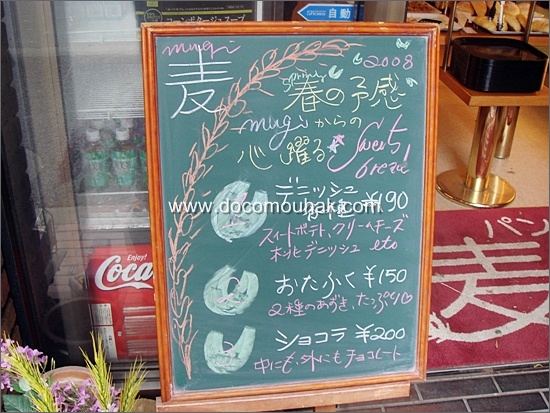 コーンポタージュスープ
自動
mugi
麦
2008
spring
春の予感
mugiからの
心躍る
Sweets
bread
www.docomouhake.com
1
デニッシュ
各種 ¥190
スイートポテト、クリームチーズ
デニッシュ etc
2
おたふく ¥150
2種のあずき、たっぷり♡
3
ショコラ ¥200
中にも、外にもチョコレート
Enjoy!
Coca
パン
麦